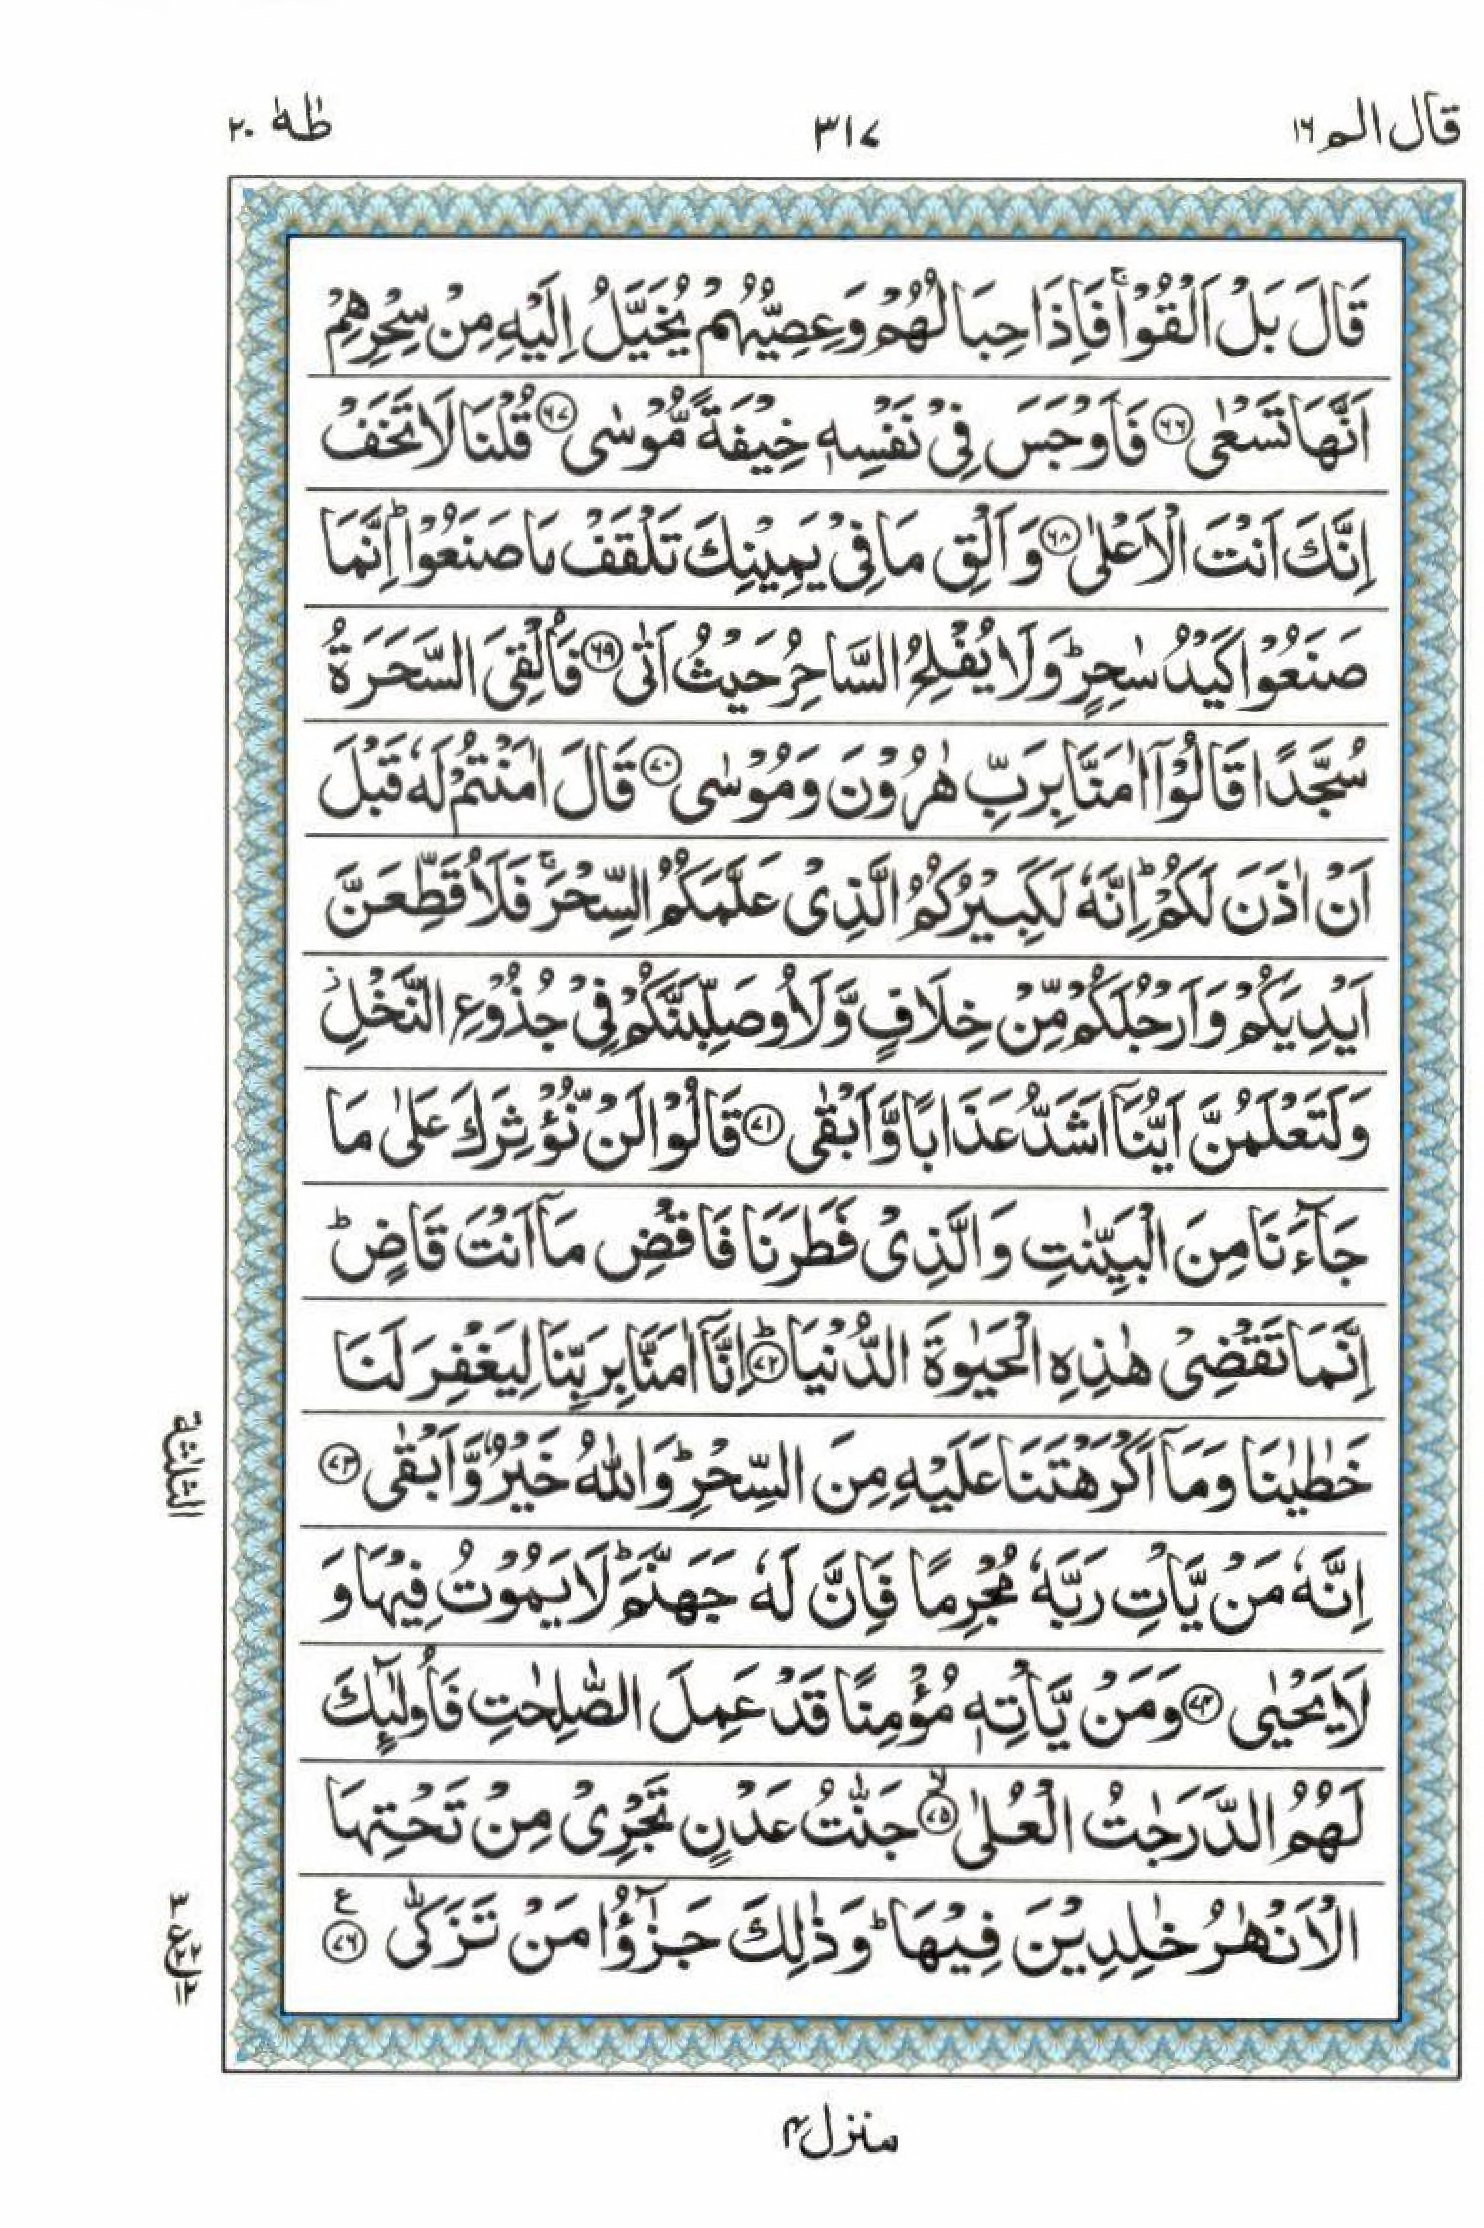 قال الم ١٦
٣١٧
طٰهٰ ٢٠
قَالَ بَلْ اَلْقُوْا ۚ فَاِذَا حِبَالُهُمْ وَعِصِيُّهُمْ يُخَيَّلُ اِلَيْهِ مِنْ سِحْرِهِمْ
اَنَّهَا تَسْعٰى ﴿٦٦﴾ فَاَوْجَسَ فِيْ نَفْسِهٖ خِيْفَةً مُّوْسٰى ﴿٦٧﴾ قُلْنَا لَا تَخَفْ
اِنَّكَ اَنْتَ الْاَعْلٰى ﴿٦٨﴾ وَاَلْقِ مَا فِيْ يَمِيْنِكَ تَلْقَفْ مَا صَنَعُوْا ؕ اِنَّمَا
صَنَعُوْا كَيْدُ سٰحِرٍ ؕ وَلَا يُفْلِحُ السَّاحِرُ حَيْثُ اَتٰى ﴿٦٩﴾ فَاُلْقِيَ السَّحَرَةُ
سُجَّدًا قَالُوْۤا اٰمَنَّا بِرَبِّ هٰرُوْنَ وَمُوْسٰى ﴿٧٠﴾ قَالَ اٰمَنْتُمْ لَهٗ قَبْلَ
اَنْ اٰذَنَ لَكُمْ ؕ اِنَّهٗ لَكَبِيْرُكُمُ الَّذِيْ عَلَّمَكُمُ السِّحْرَ ۚ فَلَاُقَطِّعَنَّ
اَيْدِيَكُمْ وَاَرْجُلَكُمْ مِّنْ خِلَافٍ وَّلَاُوصَلِّبَنَّكُمْ فِيْ جُذُوْعِ النَّخْلِ ؗ
وَلَتَعْلَمُنَّ اَيُّنَاۤ اَشَدُّ عَذَابًا وَّاَبْقٰى ﴿٧١﴾ قَالُوْا لَنْ نُّؤْثِرَكَ عَلٰى مَا
جَآءَنَا مِنَ الْبَيِّنٰتِ وَالَّذِيْ فَطَرَنَا فَاقْضِ مَاۤ اَنْتَ قَاضٍ ؕ
اِنَّمَا تَقْضِيْ هٰذِهِ الْحَيٰوةَ الدُّنْيَا ؕ﴿٧٢﴾ اِنَّاۤ اٰمَنَّا بِرَبِّنَا لِيَغْفِرَ لَنَا
خَطٰيٰنَا وَمَاۤ اَكْرَهْتَنَا عَلَيْهِ مِنَ السِّحْرِ ؕ وَاللّٰهُ خَيْرٌ وَّاَبْقٰى ﴿٧٣﴾
اِنَّهٗ مَنْ يَّاْتِ رَبَّهٗ مُجْرِمًا فَاِنَّ لَهٗ جَهَنَّمَ ؕ لَا يَمُوْتُ فِيْهَا وَ
لَا يَحْيٰى ﴿٧٤﴾ وَمَنْ يَّاْتِهٖ مُؤْمِنًا قَدْ عَمِلَ الصّٰلِحٰتِ فَاُولٰٓئِكَ
لَهُمُ الدَّرَجٰتُ الْعُلٰى ۙ﴿٧٥﴾ جَنّٰتُ عَدْنٍ تَجْرِيْ مِنْ تَحْتِهَا
الْاَنْهٰرُ خٰلِدِيْنَ فِيْهَا ؕ وَذٰلِكَ جَزٰٓؤُا مَنْ تَزَكّٰى ﴿٧٦﴾ ع
الثلثة
٣ ع ٢٢ ١٢
منزل ٤